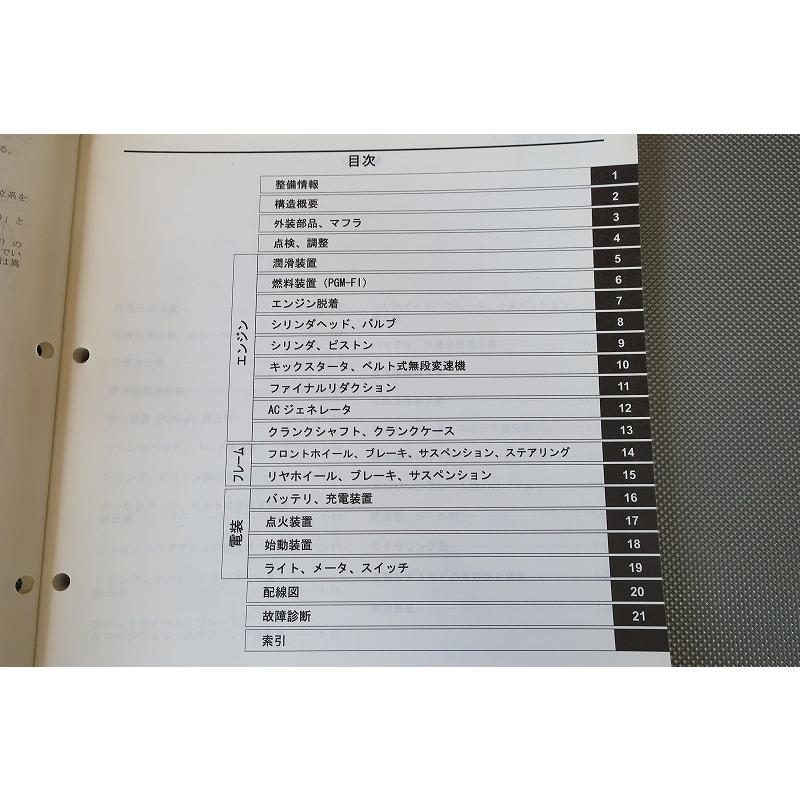 る。
目次
整備情報 1
構造概要 2
外装部品、マフラ 3
点検、調整 4
エンジン
潤滑装置 5
燃料装置 (PGM-FI) 6
エンジン脱着 7
シリンダヘッド、バルブ 8
シリンダ、ピストン 9
キックスタータ、ベルト式無段変速機 10
ファイナルリダクション 11
ACジェネレータ 12
クランクシャフト、クランクケース 13
フレーム
フロントホイール、ブレーキ、サスペンション、ステアリング 14
リヤホイール、ブレーキ、サスペンション 15
電装
バッテリ、充電装置 16
点火装置 17
始動装置 18
ライト、メータ、スイッチ 19
配線図 20
故障診断 21
索引